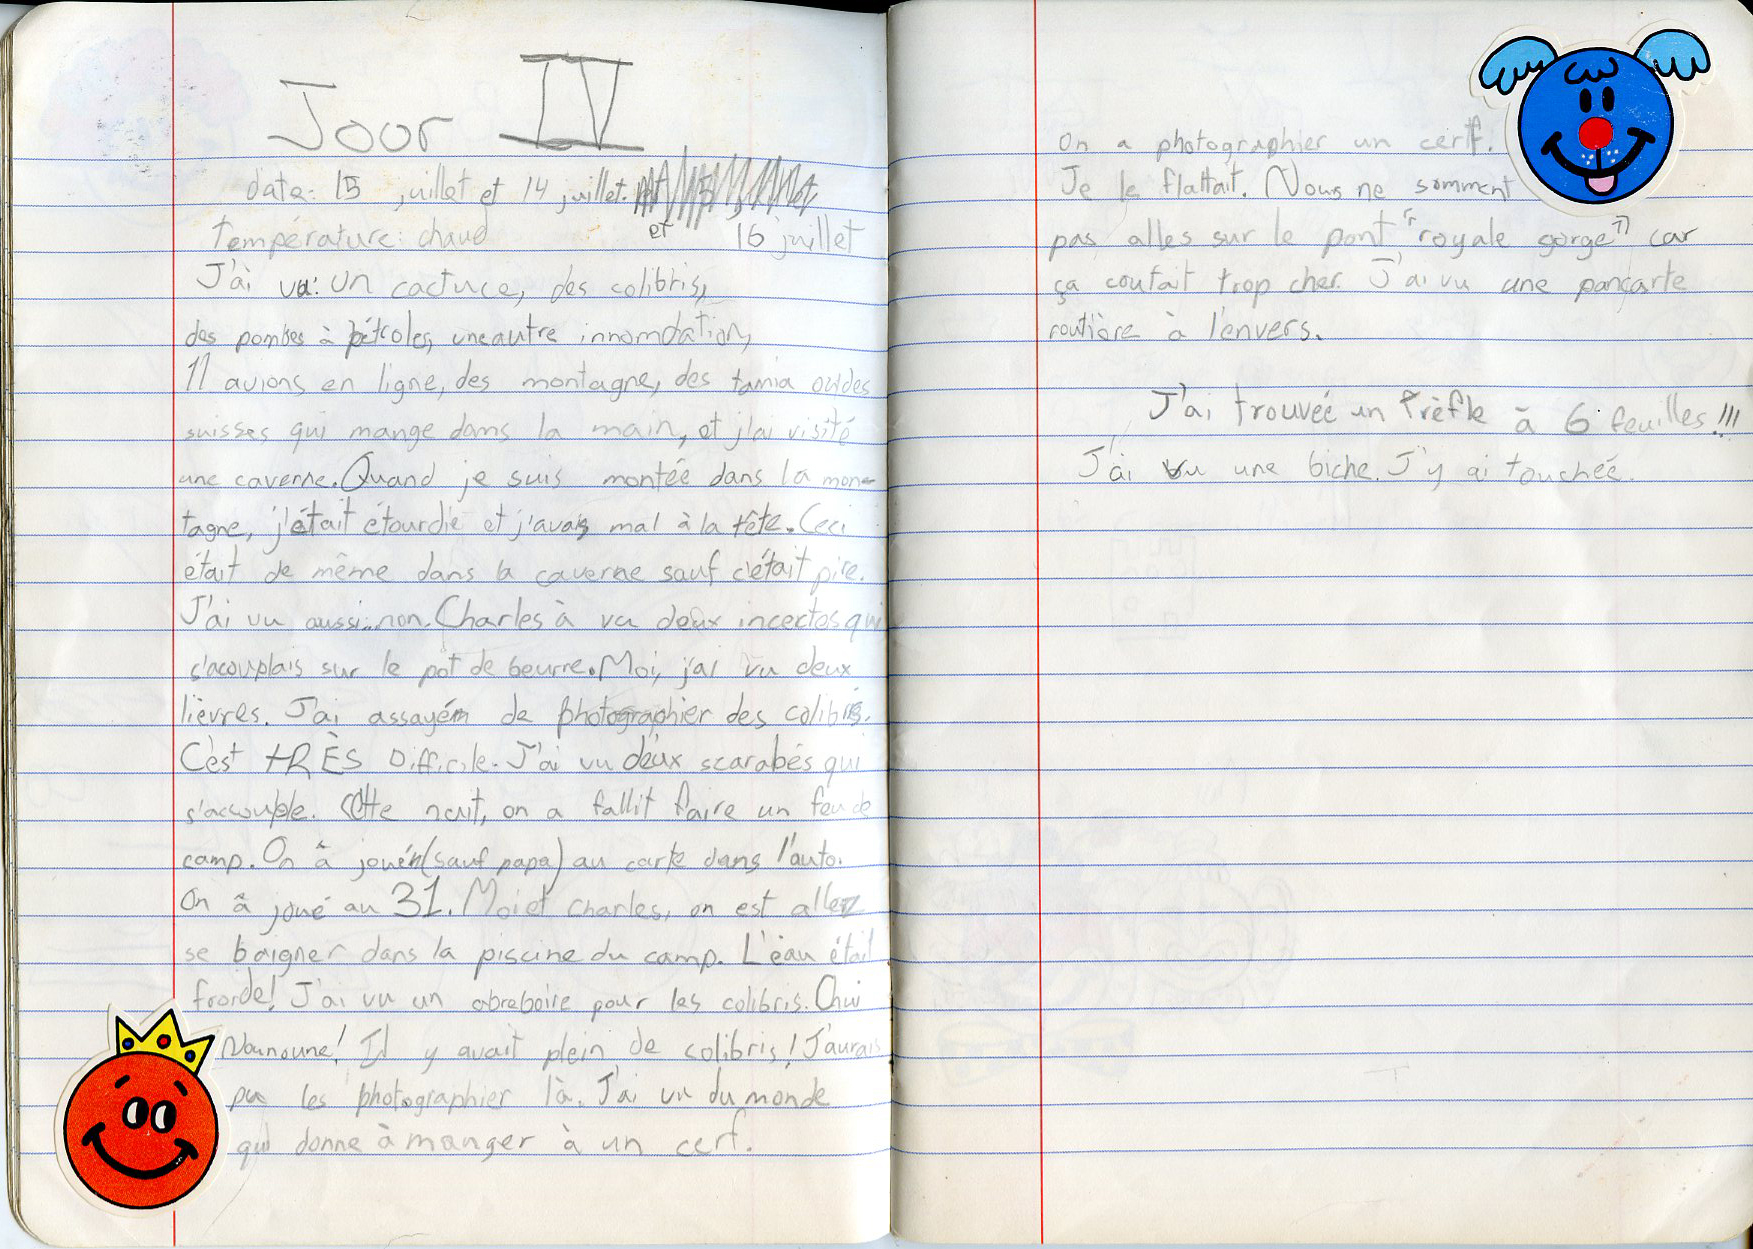 Jour IV
date: 15 juillet et 14 juillet.
température: chaud et 16 juillet
J'ai vu: un cactuce, des colibris,
des pombes à pétroles, une autre innomdation,
11 avions en ligne, des montagne, des tamia ou des
suisses qui mange dans la main, et j'ai visité
une caverne. Quand je suis montée dans la mon-
tagne, j'était étourdie et j'avais mal à la tête. Ceci
était de même dans la caverne sauf c'était pire.
J'ai vu aussi...non. Charles à vu deux incectes qui
s'acouplais sur le pot de beurre. Moi, j'ai vu deux
lièvres. J'ai assayé de photographier des colibris.
C'est tRÈS Difficile. J'ai vu deux scarabés qui
s'accouple. Cette nuit, on a fallit faire un feu de
camp. On à jouér (sauf papa) au carte dans l'auto.
On à joué au 31. Moi et Charles, on est allez
se baigner dans la piscine du camp. L'eau était
froide! J'ai vu un abreboire pour les colibris. Ohui
Nounoune! Il y avait plein de colibris! J'aurais
pu les photographier là. J'ai vu du monde
qui donne à manger à un cerf.
On a photographier un cerf.
Je le flattait. Nous ne somment
pas alles sur le pont "royale gorge" car
ça coutait trop cher. J'ai vu une pancarte
routière à l'envers.
J'ai trouvée un trèfle à 6 feuilles!!!
J'ai vu une biche. J'y ai touchée.